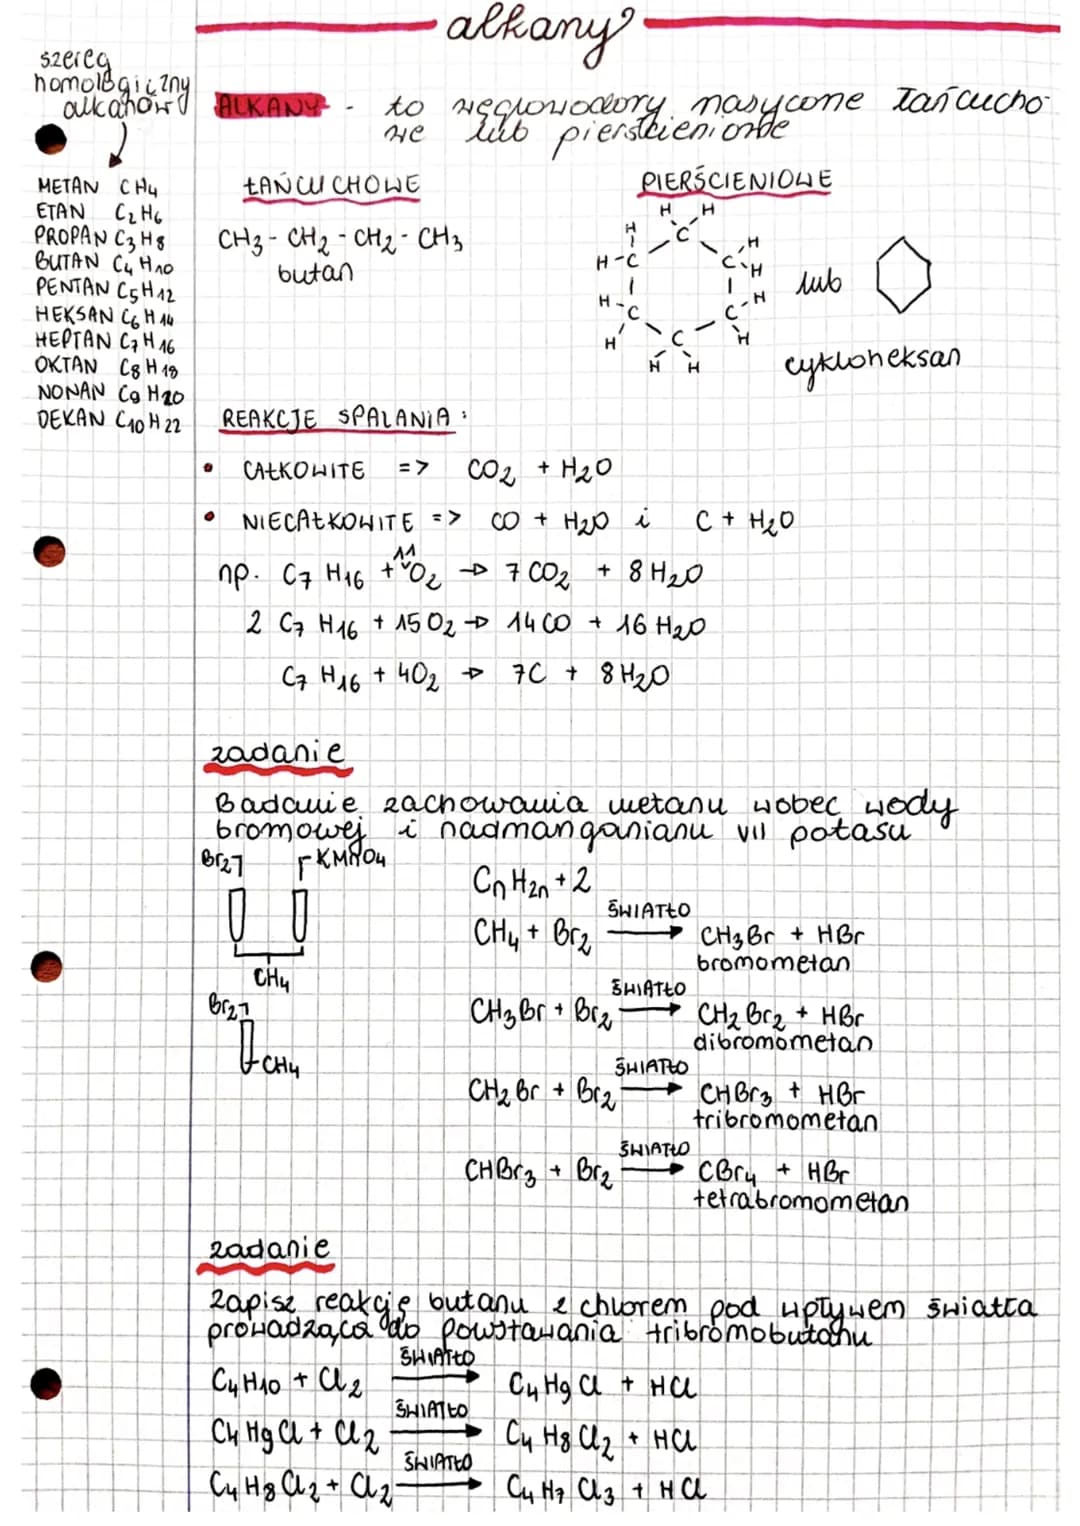 alkany
szereg
homologiczny
alkanów
METAN CH4
ETAN C2H6
PROPAN C3H8
BUTAN C4H10
PENTAN C5H12
HEKSAN C6H14
HEPTAN C7H16
OKTAN C8H18
NONAN C9H20
DEKAN C10H22
ALKANY - to węglowodory nasycone łańcucho-
we lub pierścieniowe
ŁAŃCUCHOWE
CH3 - CH2 - CH2 - CH3
butan
PIERŚCIENIOWE
H H
H C H
H-C C H
H-C C-H
H C H
H H
lub
cykloheksan
REAKCJE SPALANIA:
• CAŁKOWITE => CO2 + H2O
• NIECAŁKOWITE => CO + H2O i C + H2O
np. C7H16 + 11O2 → 7CO2 + 8H2O
2 C7H16 + 15O2 → 14CO + 16H2O
C7H16 + 4O2 → 7C + 8H2O
zadanie
Badanie zachowania metanu wobec wody
bromowej i nadmanganianu VII potasu
Br2 KMnO4
CH4
Br2
CH4
CnH2n+2
CH4 + Br2 ŚWIATŁO → CH3Br + HBr
bromometan
CH3Br + Br2 ŚWIATŁO → CH2Br2 + HBr
dibromometan
CH2Br + Br2 ŚWIATŁO → CHBr3 + HBr
tribromometan
CHBr3 + Br2 ŚWIATŁO → CBr4 + HBr
tetrabromometan
zadanie
Zapisz reakcję butanu z chlorem pod wpływem światła
prowadzącą do powstawania tribromobutanu
C4H10 + Cl2 ŚWIATŁO → C4H9Cl + HCl
C4H9Cl + Cl2 ŚWIATŁO → C4H8Cl2 + HCl
C4H8Cl2 + Cl2 ŚWIATŁO → C4H7Cl3 + HCl